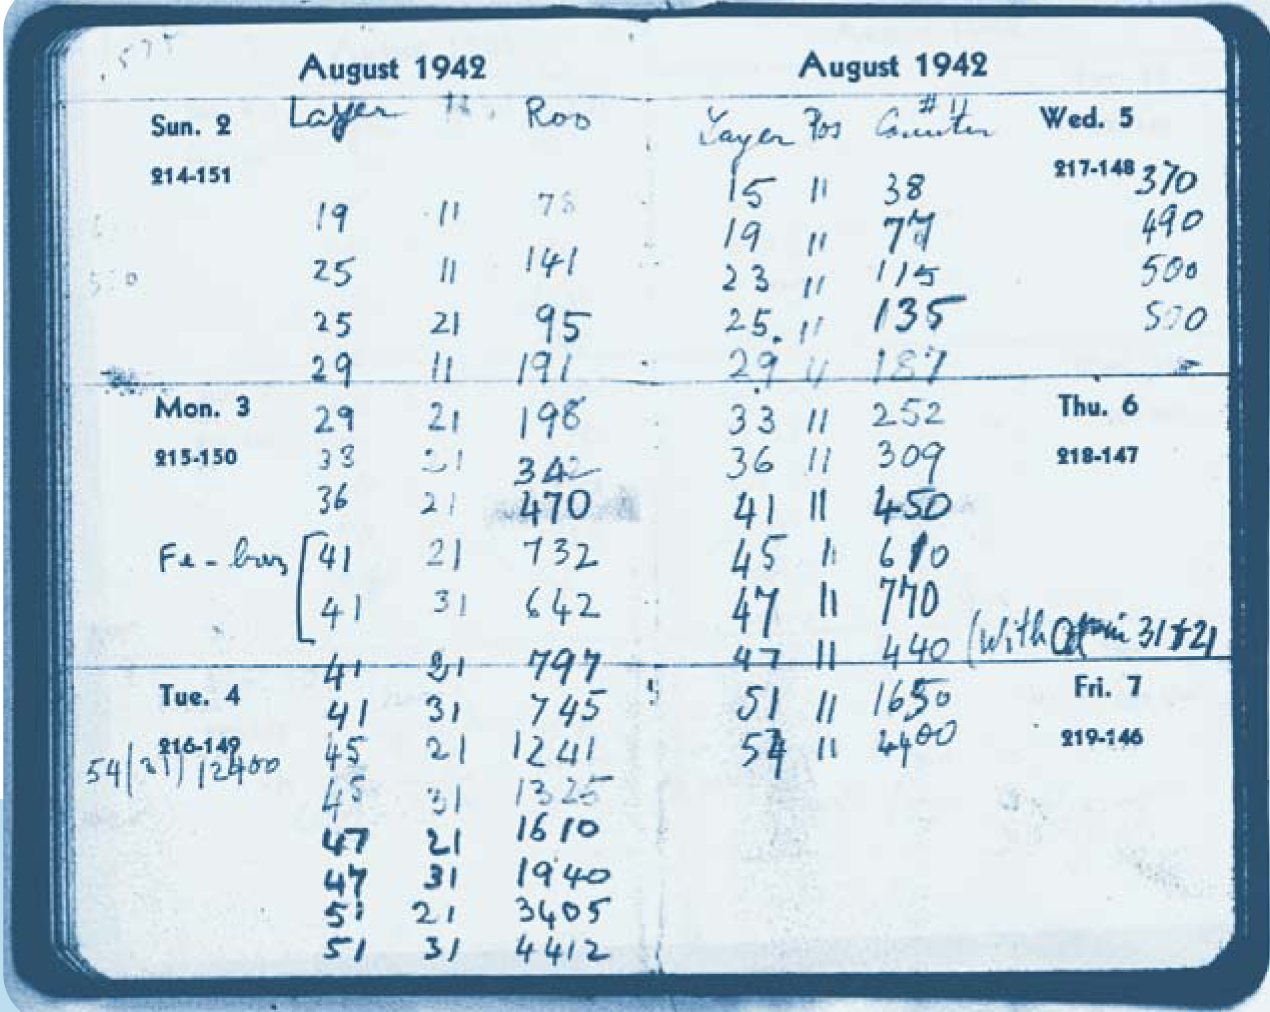 August 1942
Layer Roo
Sun. 2
214-151
19 11 78
25 11 141
25 21 95
29 11 191
Mon. 3
29 21 198
215-150
33 21 342
36 21 470
Fe - 41 21 732
41 31 642
41 21 797
Tue. 4
41 31 745
216-149
45 21 1241
54 (31) 12400
45 31 1325
47 21 1610
47 31 1940
51 21 3405
51 31 4412
August 1942
Layer Pos # 11 Counter
Wed. 5
217-148
15 11 38 370
19 11 77 490
23 11 115 500
25. 11 135 500
29 11 187
Thu. 6
33 11 252
218-147
36 11 309
41 11 450
45 11 610
47 11 770
47 11 440 (With 31 + 21
Fri. 7
51 11 1650
219-146
54 11 4400